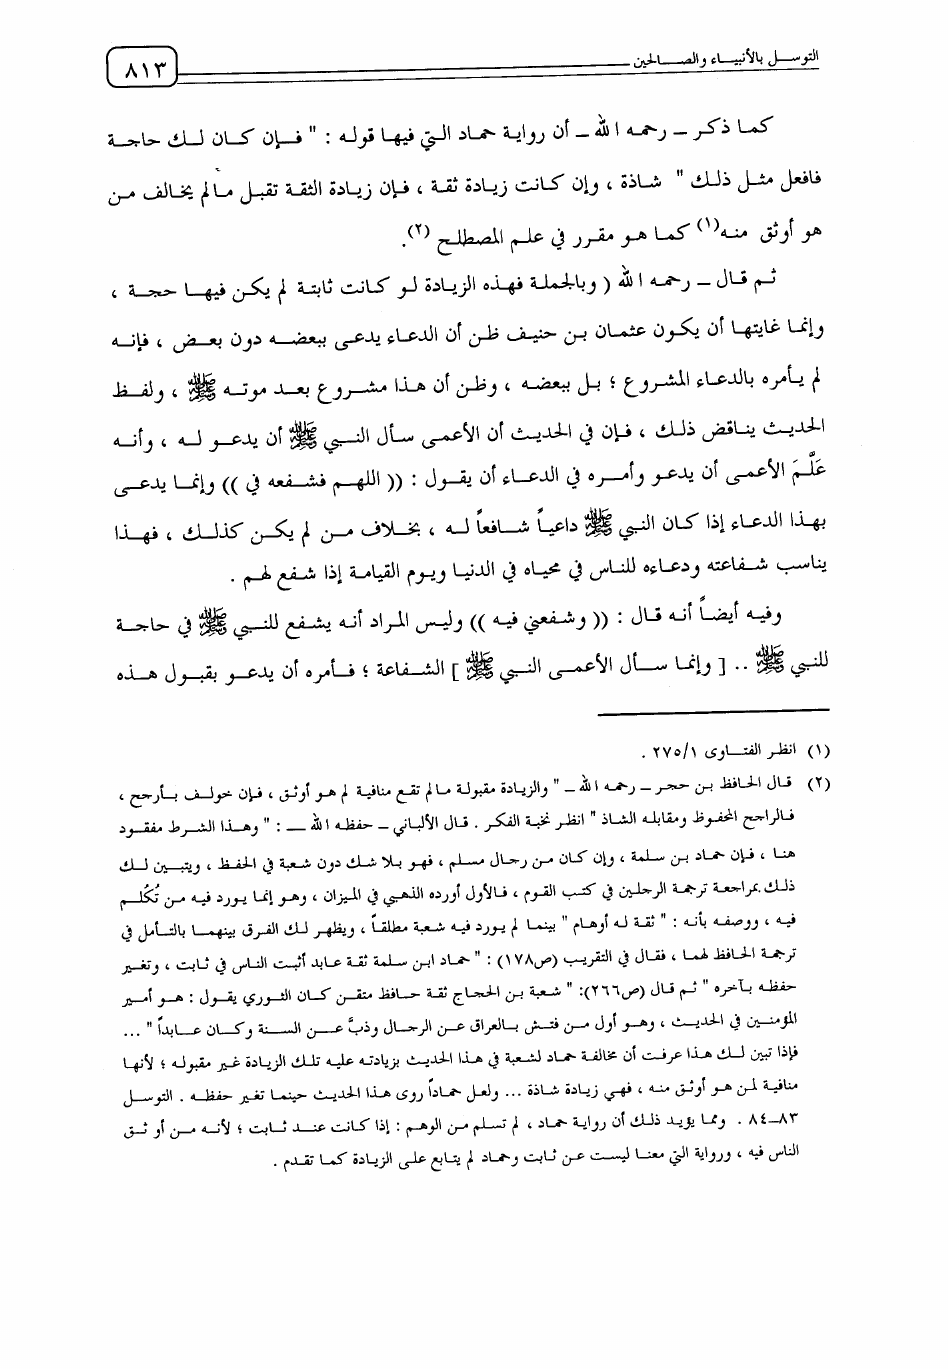 التوسل بالأنبياء والصالحين
٨١٣
كما ذكر ـ رحمه الله ـ أن رواية حماد التي فيها قوله : " فإن كان لك حاجة
فافعل مثل ذلك " شاذة ، وإن كانت زيادة ثقة ، فإن زيادة الثقة تقبل مالم يخالف من
هو أوثق منه(١) كما هو مقرر في علم المصطلح (٢).
ثم قال ـ رحمه الله ( وبالجملة فهذه الزيادة لو كانت ثابتة لم يكن فيها حجة ،
وإنما غايتها أن يكون عثمان بن حنيف ظن أن الدعاء يدعى ببعضه دون بعض ، فإنه
لم يأمره بالدعاء المشروع ؛ بل ببعضه ، وظن أن هذا مشروع بعد موته ﷺ ، ولفظ
الحديث يناقض ذلك ، فإن في الحديث أن الأعمى سأل النبي ﷺ أن يدعو له ، وأنه
عَلَّمَ الأعمى أن يدعو وأمره في الدعاء أن يقول : (( اللهم فشفعه في )) وإنما يدعى
بهذا الدعاء إذا كان النبي ﷺ داعياً شافعاً له ، بخلاف من لم يكن كذلك ، فهذا
يناسب شفاعته ودعاءه للناس في محياه في الدنيا ويوم القيامة إذا شفع لهم .
وفيه أيضاً أنه قال : (( وشفعني فيه )) وليس المراد أنه يشفع للنبي ﷺ في حاجة
للنبي ﷺ .. [ وإنما سأل الأعمى النبي ﷺ ] الشفاعة ؛ فأمره أن يدعو بقبول هذه
(١) انظر الفتاوى ٢٧٥/١ .
(٢) قال الحافظ بن حجر ـ رحمه الله ـ " والزيادة مقبولة مالم تقع منافية لم هو أوثق ، فإن خولف بأرجح ،
فالراجح المحفوظ ومقابله الشاذ " انظر نخبة الفكر . قال الألباني ـ حفظه الله ـ : " وهذا الشرط مفقود
هنا ، فإن حماد بن سلمة ، وإن كان من رجال مسلم ، فهو بلا شك دون شعبة في الحفظ ، ويتبين لك
ذلك بمراجعة ترجمة الرجلين في كتب القوم ، فالأول أورده الذهبي في الميزان ، وهو إنما يورد فيه من تُكُلم
فيه ، ووصفه بأنه : " ثقة له أوهام " بينما لم يورد فيه شعبة مطلقاً ، ويظهر لك الفرق بينهما بالتأمل في
ترجمة الحافظ لهما ، فقال في التقريب (ص١٧٨) : " حماد ابن سلمة ثقة عابد أثبت الناس في ثابت ، وتغير
حفظه بآخره " ثم قال (ص٢٦٦): " شعبة بن الحجاج ثقة حافظ متقن كان الثوري يقول : هو أمير
المؤمنين في الحديث ، وهو أول من فتش بالعراق عن الرجال وذبَّ عن السنة وكان عابداً " ...
فإذا تبين لك هذا عرفت أن مخالفة حماد لشعبة في هذا الحديث بزيادته عليه تلك الزيادة غير مقبوله ؛ لأنها
منافية لمن هو أوثق منه ، فهي زيادة شاذة ... ولعل حماداً روى هذا الحديث حينما تغير حفظه . التوسل
٨٣ـ٨٤ . ومما يؤيد ذلك أن رواية حماد ، لم تسلم من الوهم : إذا كانت عند ثابت ؛ لأنه من أوثق
الناس فيه ، ورواية التي معنا ليست عن ثابت وحماد لم يتابع على الزيادة كما تقدم .